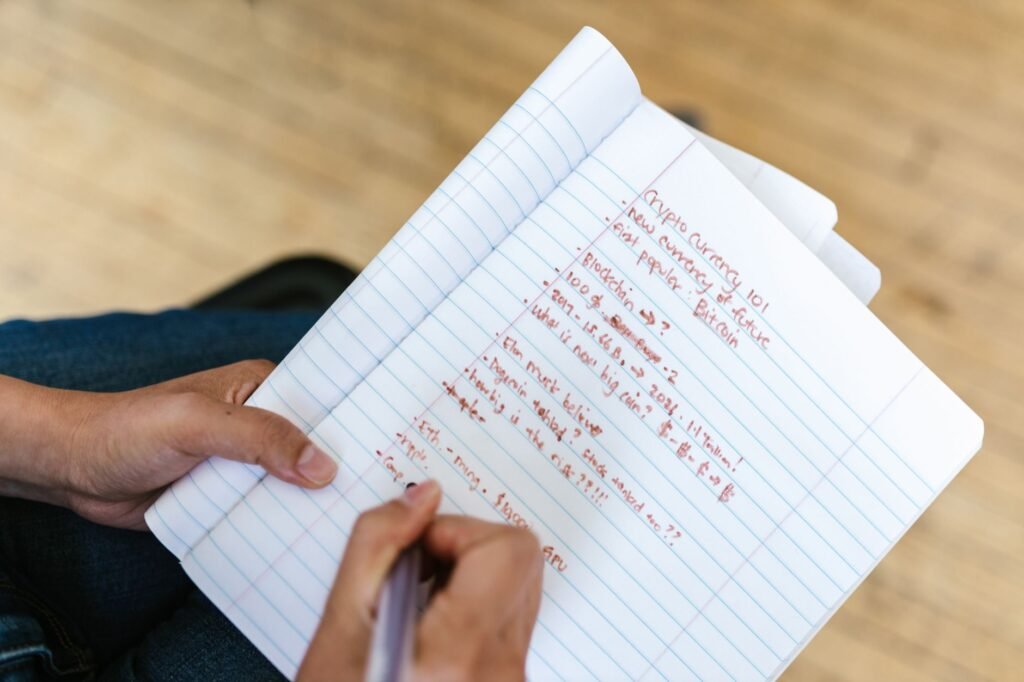 Crypto Currency 101
- new currency of future
- first popular : Bitcoin
- Blockchain → ?
- 100 of
- 2017 - 15.66B. → 2021 : 1.1 Trillion!
- What is next big coin? $ - $ - $ → $
- Elon musk believer
- Dogecoin tanked? stock tanked too ??
- how big is the risk ???!!!
- Eth. - mining.
GPU
- ripple.